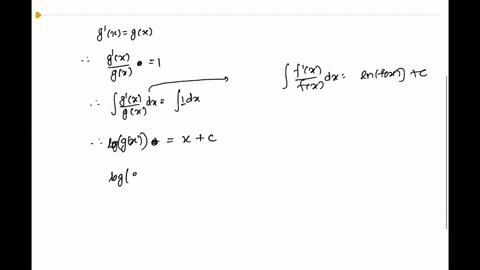 g'(x) = g(x)
∴ g'(x)/g(x) = 1
∴ ∫ g'(x)/g(x) dx = ∫ 1 dx
∫ f'(x)/f(x) dx = ln(f(x)) + c
∴ log(g(x)) = x + c
log(